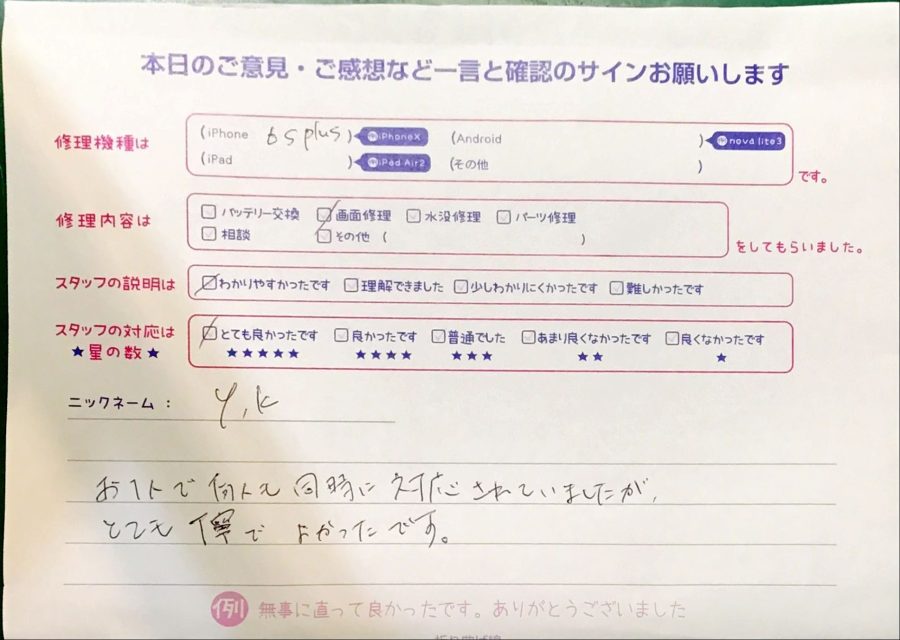 本日のご意見・ご感想など一言と確認のサインお願いします
修理機種は (iPhone 6s plus) iPhoneX (Android ) nova lite3
(iPad ) iPad Air2 (その他 ) です。
修理内容は バッテリー交換 画面修理 水没修理 パーツ修理
相談 その他 ( ) をしてもらいました。
スタッフの説明は わかりやすかったです 理解できました 少しわかりにくかったです 難しかったです
スタッフの対応は とても良かったです 良かったです 普通でした あまり良くなかったです 良くなかったです
★星の数★ ★★★★★ ★★★★ ★★★ ★★ ★
ニックネーム： Y.K
お1人で何人も同時に対応されていましたが、
とても寧でよかったです。
例 無事に直って良かったです。ありがとうございました